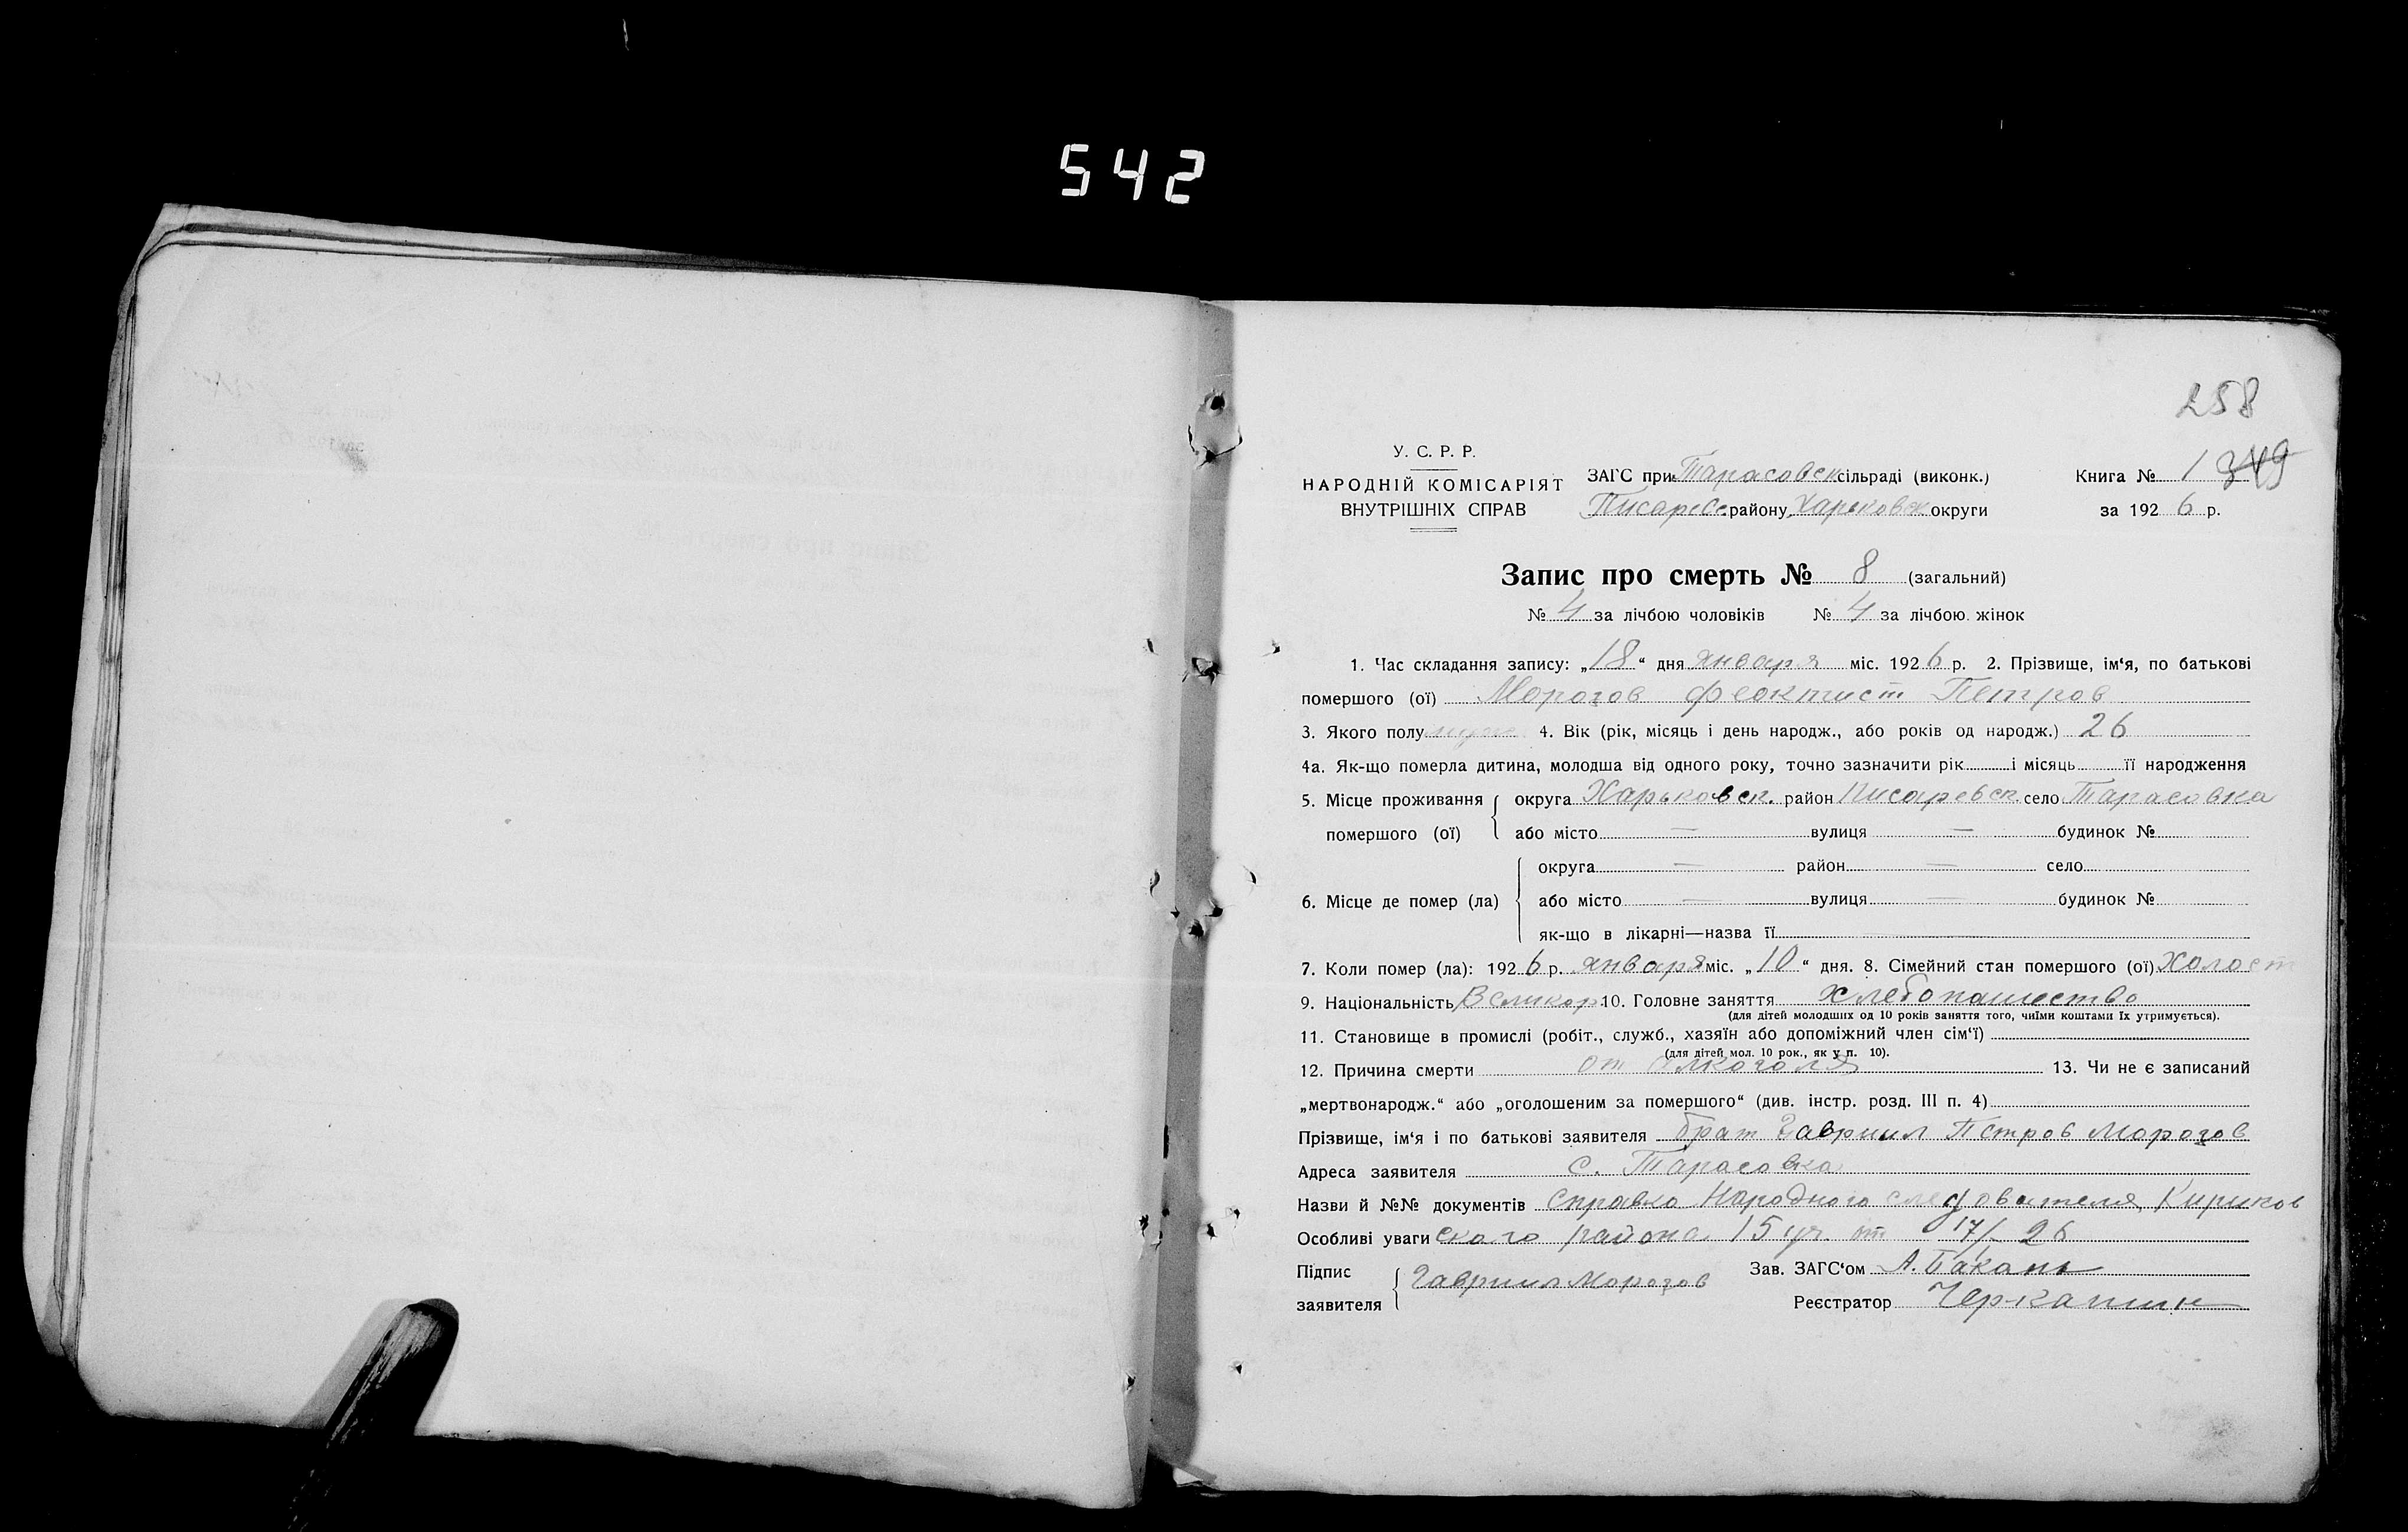 542
258
У. С. Р. Р.
НАРОДНІЙ КОМІСАРІЯТ
ВНУТРІШНІХ СПРАВ
ЗАГС при Тарасовск сільраді (виконк.)
Писаревс району Харьковск округи
Книга № 1 349
за 1926 р.
Запис про смерть № 8 (загальний)
№ 4 за лічбою чоловіків № 4 за лічбою жінок
1. Час складання запису: „18“ дня января міс. 1926 р. 2. Прізвище, ім‘я, по батькові
помершого (ої) Морозов Феоктист Петров
3. Якого полу 4. Вік (рік, місяць і день народж., або років од народж.) 26
4а. Як-що померла дитина, молодша від одного року, точно зазначити рік і місяць її народження
5. Місце проживання помершого (ої) округа Харьковск. район Писаревск село Тарасовка
або місто — вулиця — будинок №
6. Місце де помер (ла) округа — район — село
або місто — вулиця — будинок №
як-що в лікарні—назва її
7. Коли помер (ла): 1926 р. января міс. „10“ дня. 8. Сімейний стан помершого (ої) Холост
9. Національність Великор 10. Головне заняття хлебопашество
(для дітей молодших од 10 років заняття того, чиїми коштами їх утримується).
11. Становище в промислі (робіт., служб., хазяїн або допоміжний член сім‘ї)
(для дітей мол. 10 рок., як у п. 10).
12. Причина смерти от алкоголя 13. Чи не є записаний
„мертвонародж.“ або „оголошеним за помершого“ (див. інстр. розд. III п. 4)
Прізвище, ім‘я і по батькові заявителя брат Гавриил Петров Морозов
Адреса заявителя с. Тарасовка
Назви й №№ документів Справка Народного следователя Кириков
Особливі уваги ского района 15 уч. от 17/I 26
Підпис заявителя Гавриил Морозов
Зав. ЗАГС‘ом А. Бакань
Реєстратор Черкашин